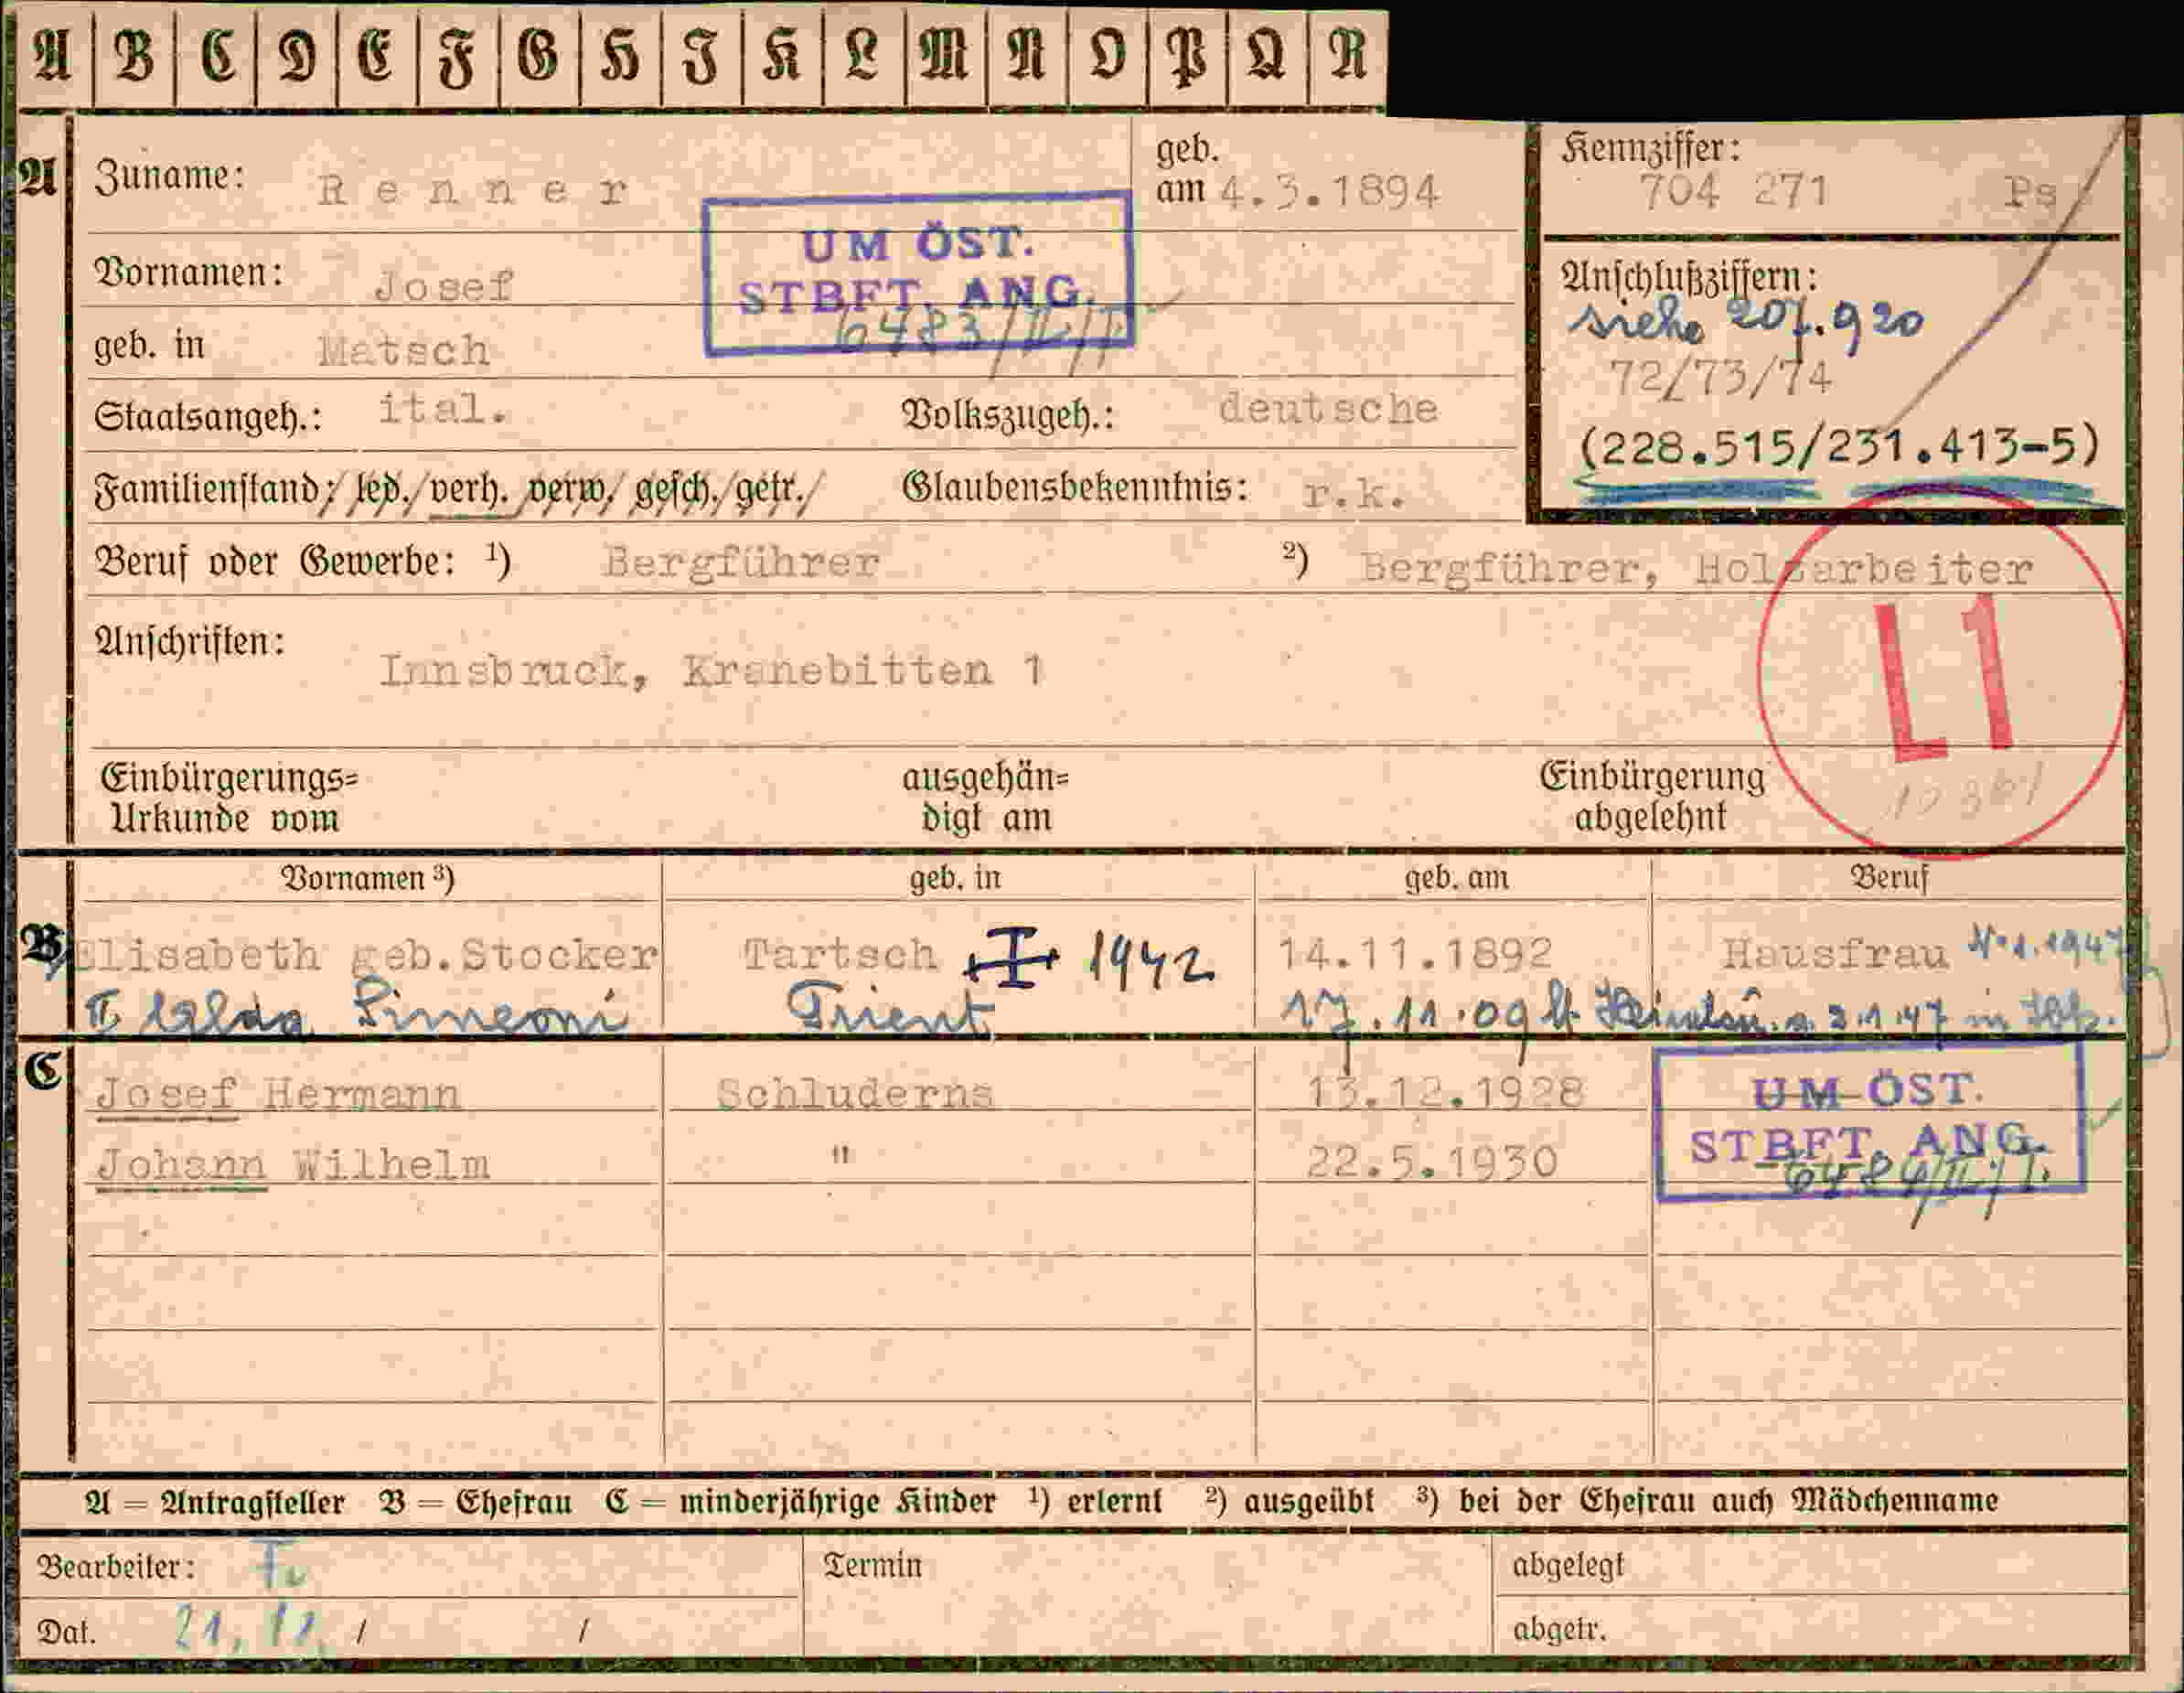 A B C D E F G H I K L M N O P Q R
A Zuname: Renner geb. am 4.3.1894
Kennziffer: 704 271 Ps
UM ÖST.
STBFT. ANG.
6483/II/
Vornamen: Josef
geb. in Matsch
Anschlußziffern:
siehe 207.920
72/73/74
(228.515/231.413-5)
Staatsangeh.: ital. Volkszugeh.: deutsche
Familienstand: led./verh. verw./gesch./getr./ Glaubensbekenntnis: r.k.
Beruf oder Gewerbe: ¹) Bergführer ²) Bergführer, Holzarbeiter
Anschriften: Innsbruck, Kranebitten 1
L1
Einbürgerungs= Urkunde vom ausgehän= digt am Einbürgerung abgelehnt
Vornamen ³) geb. in geb. am Beruf
B Elisabeth geb.Stocker Tartsch 1942 14.11.1892 Hausfrau
Simeoni Trient 17.11.09 2.1.47 in
C Josef Hermann Schluderns 13.12.1928
UM ÖST.
STBFT. ANG.
Johann Wilhelm " 22.5.1930
A = Antragsteller B = Ehefrau C = minderjährige Kinder ¹) erlernt ²) ausgeübt ³) bei der Ehefrau auch Mädchenname
Bearbeiter: Termin abgelegt
Dat. 21. / / abgetr.